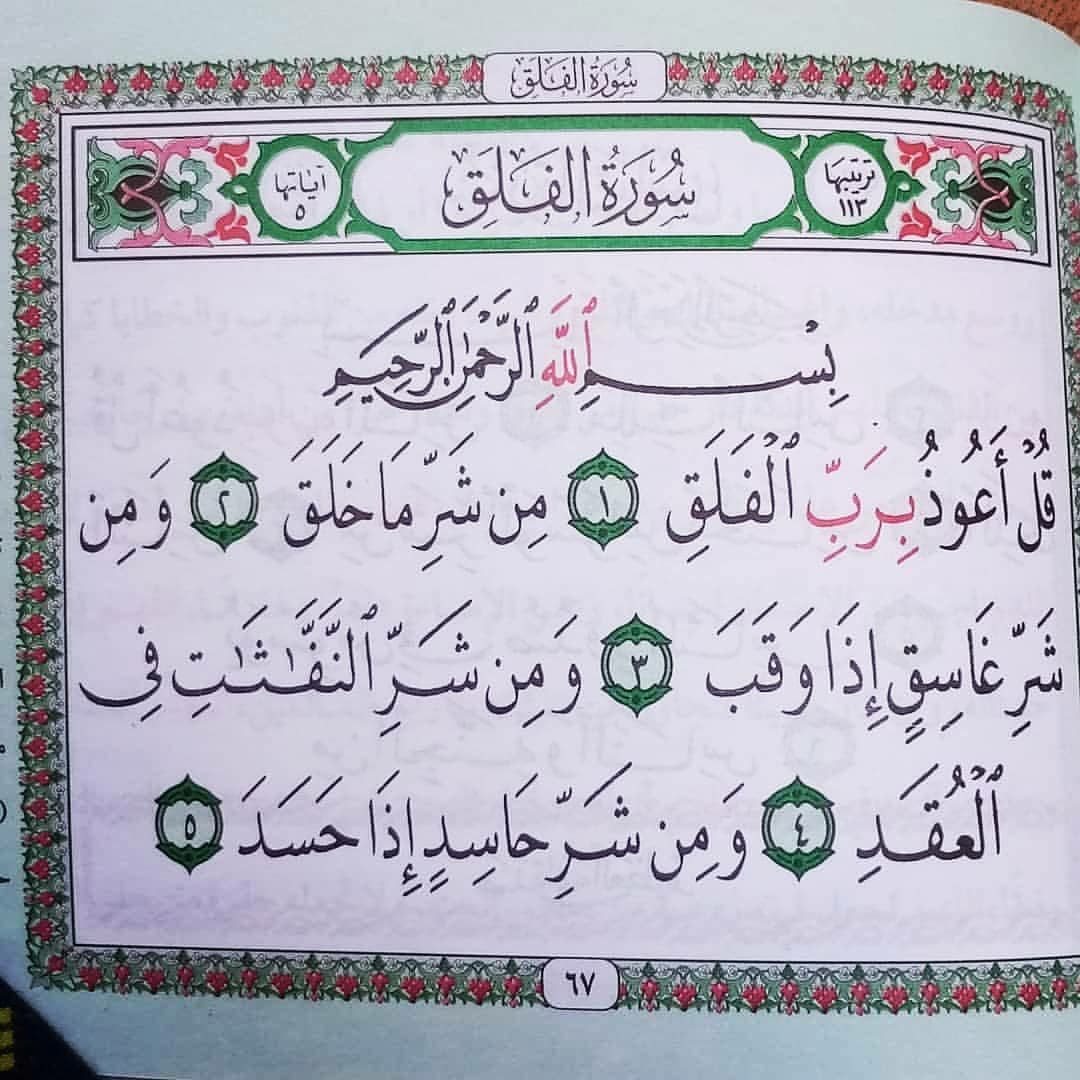 سُورَةُ الفَلَقِ
تَرْتِيبُهَا ١١٣
سُورَةُ الفَلَقِ
آيَاتُهَا ٥
بِسْمِ ٱللَّهِ ٱلرَّحْمَٰنِ ٱلرَّحِيمِ
قُلْ أَعُوذُ بِرَبِّ ٱلْفَلَقِ ١ مِن شَرِّ مَا خَلَقَ ٢ وَمِن
شَرِّ غَاسِقٍ إِذَا وَقَبَ ٣ وَمِن شَرِّ ٱلنَّفَّٰثَٰتِ فِى
ٱلْعُقَدِ ٤ وَمِن شَرِّ حَاسِدٍ إِذَا حَسَدَ ٥
٦٧